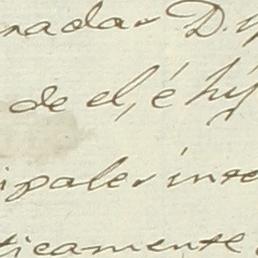 nadas D. y
de el, é hij
ipales inte
ticamente